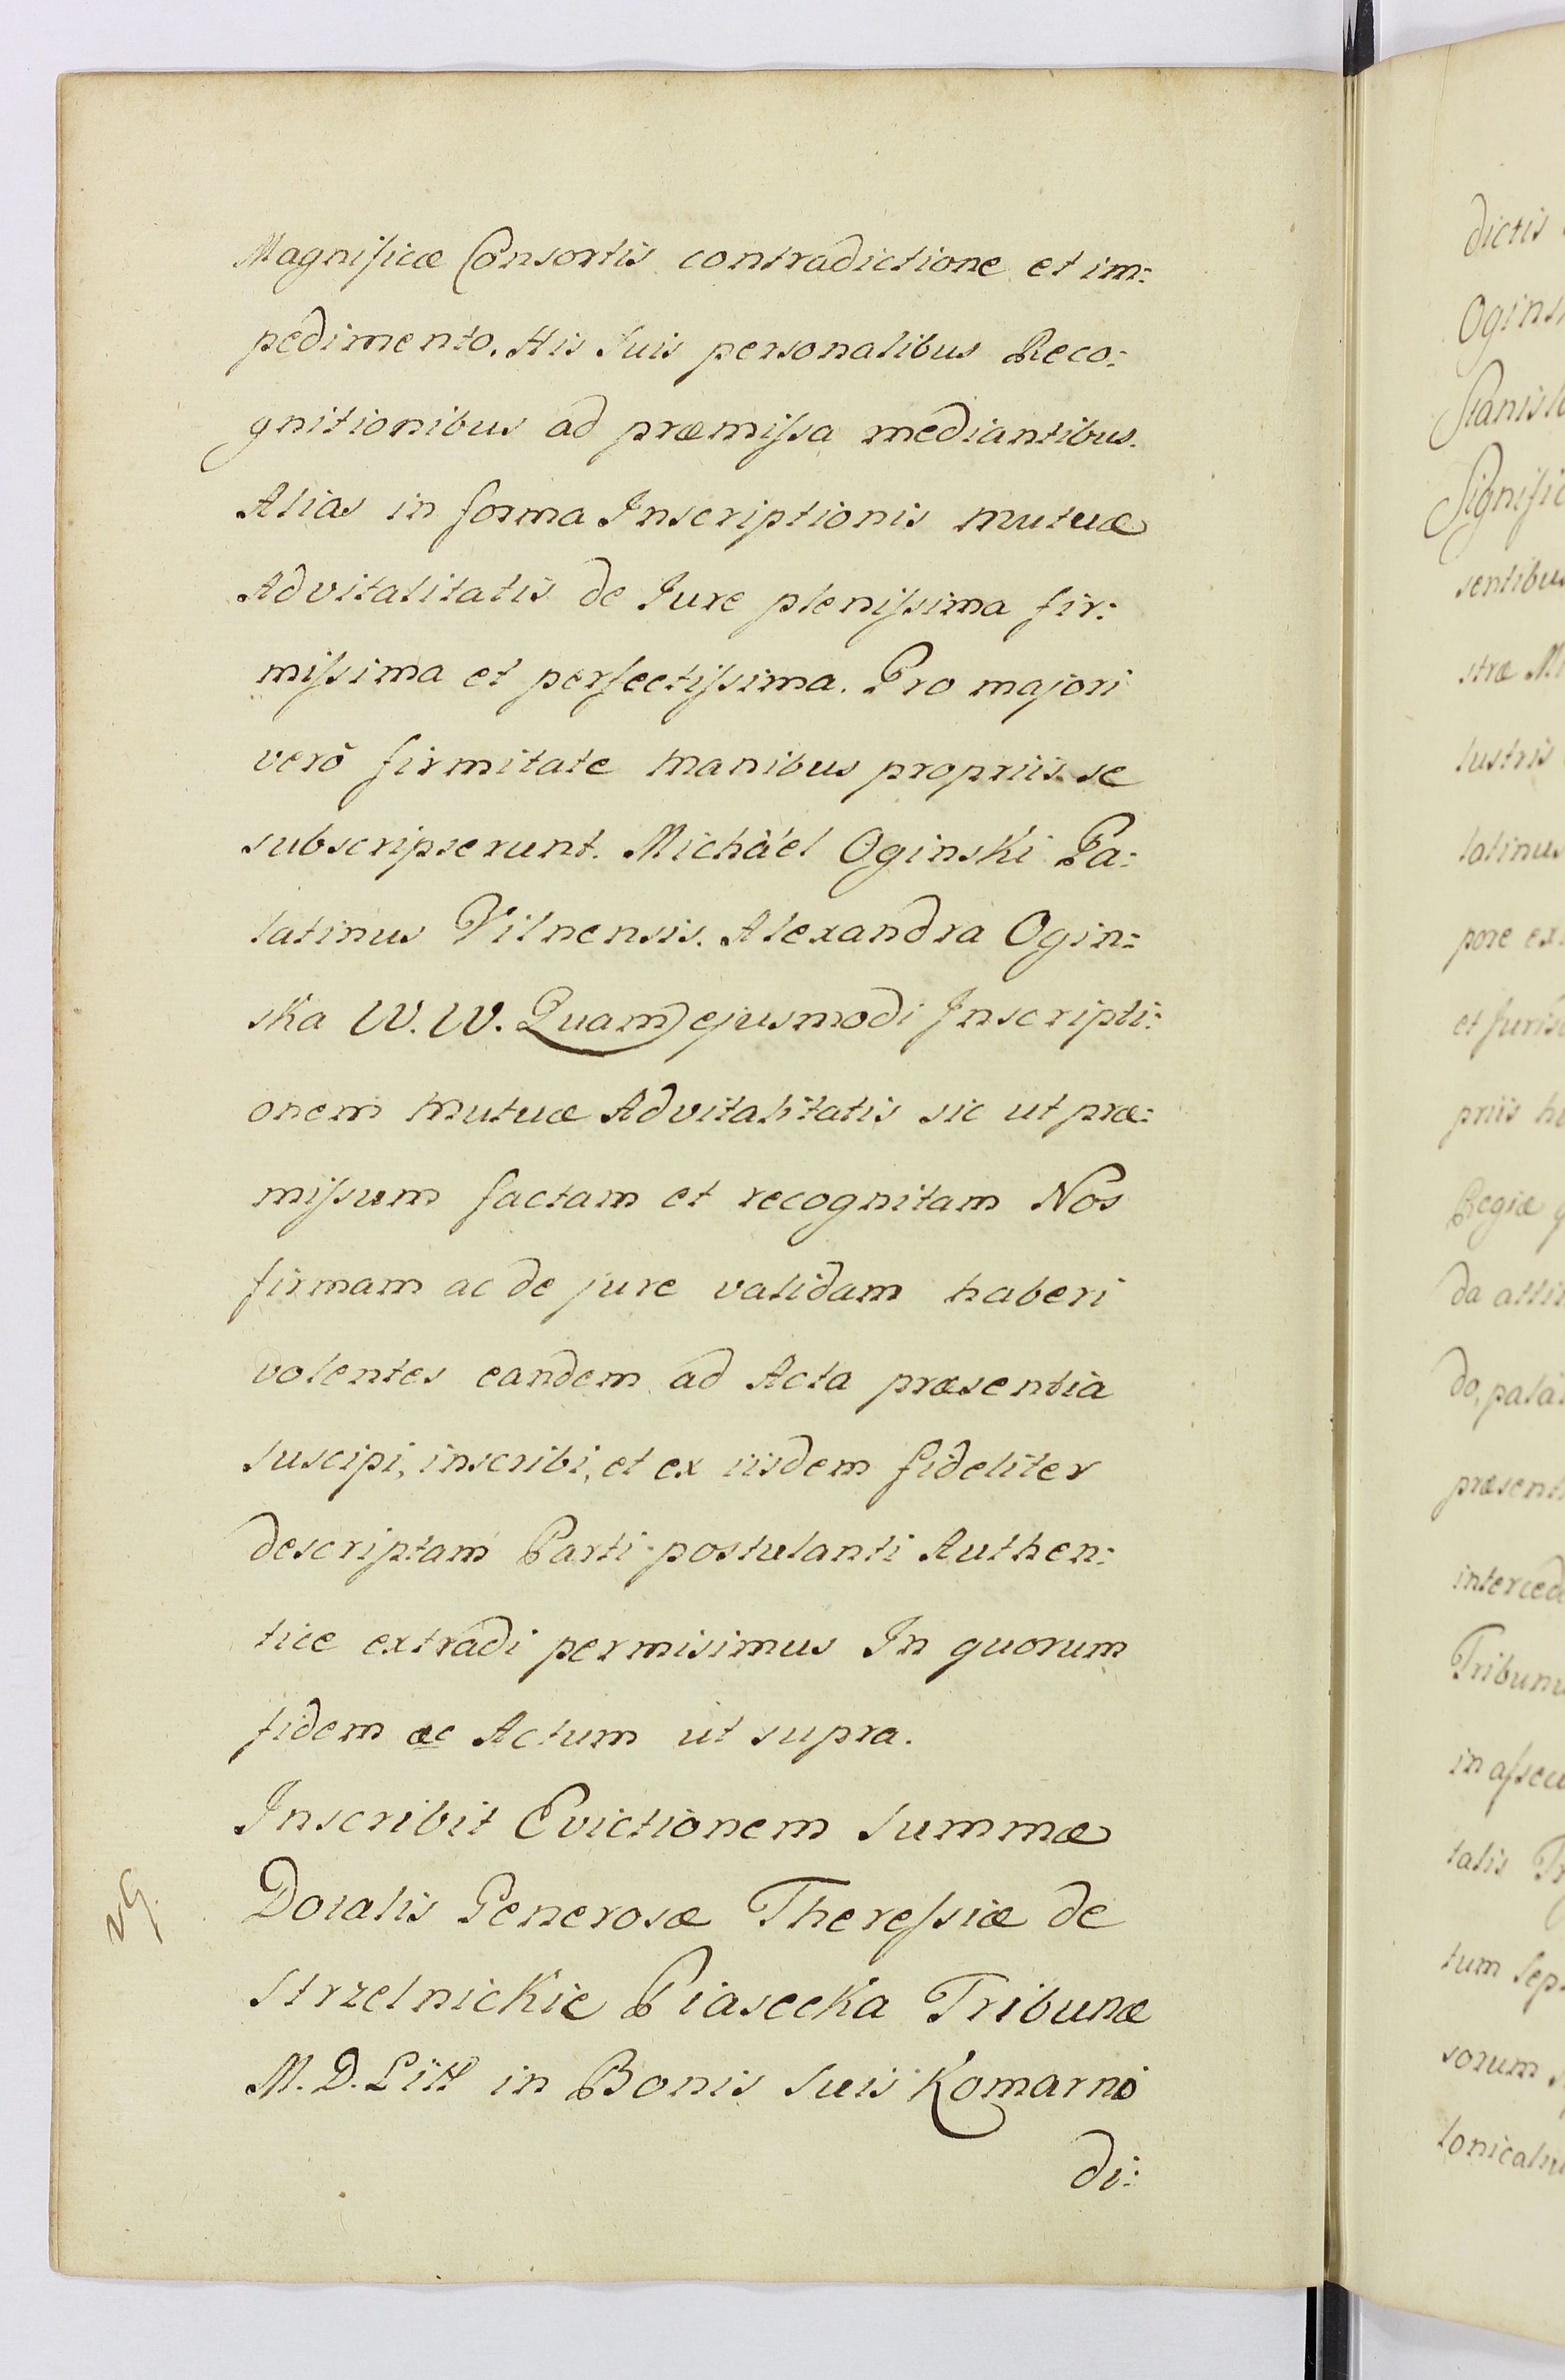 Magnificæ Consortis contradictione et im:
pedimento. His suis personalibus Reco:
gnitionibus ad præmissa mediantibus.
Alias in forma Inscriptionis mutuæ
Advitalitatis de Jure plenissima fir:
missima et perfectissima. Pro majori
verò firmitate manibus propriis se
subscripserunt. Michäel Oginski Pa:
latinus Vilnensis. Alexandra Ogin:
ska W. W. Quam ejusmodi Inscripti:
onem mutuæ Advitalitatis sic ut præ:
missum factam et recognitam Nos
firmam ac de jure validam haberi
volentes eandem ad Acta præsentia
suscipi, inscribi, et ex iisdem fideliter
descriptam Parti postulanti Authen:
tice extradi permisimus In quorum
fidem ac Actum ut supra.
Inscribit Evictionem summæ
Dotalis Generosæ Theressiæ de
Strzelnickie Piasecka Tribunæ
M. D. Litt in Bonis suis Komarno
di:
dictis
Ogins
Stanisl
Signific
sentibus
stræ M
lustris
latinus
pore ex
et juris
priis
Regiæ
da
do, palà
præsent
interced
Tribunu
in assecu
talis
tum sep
sorum